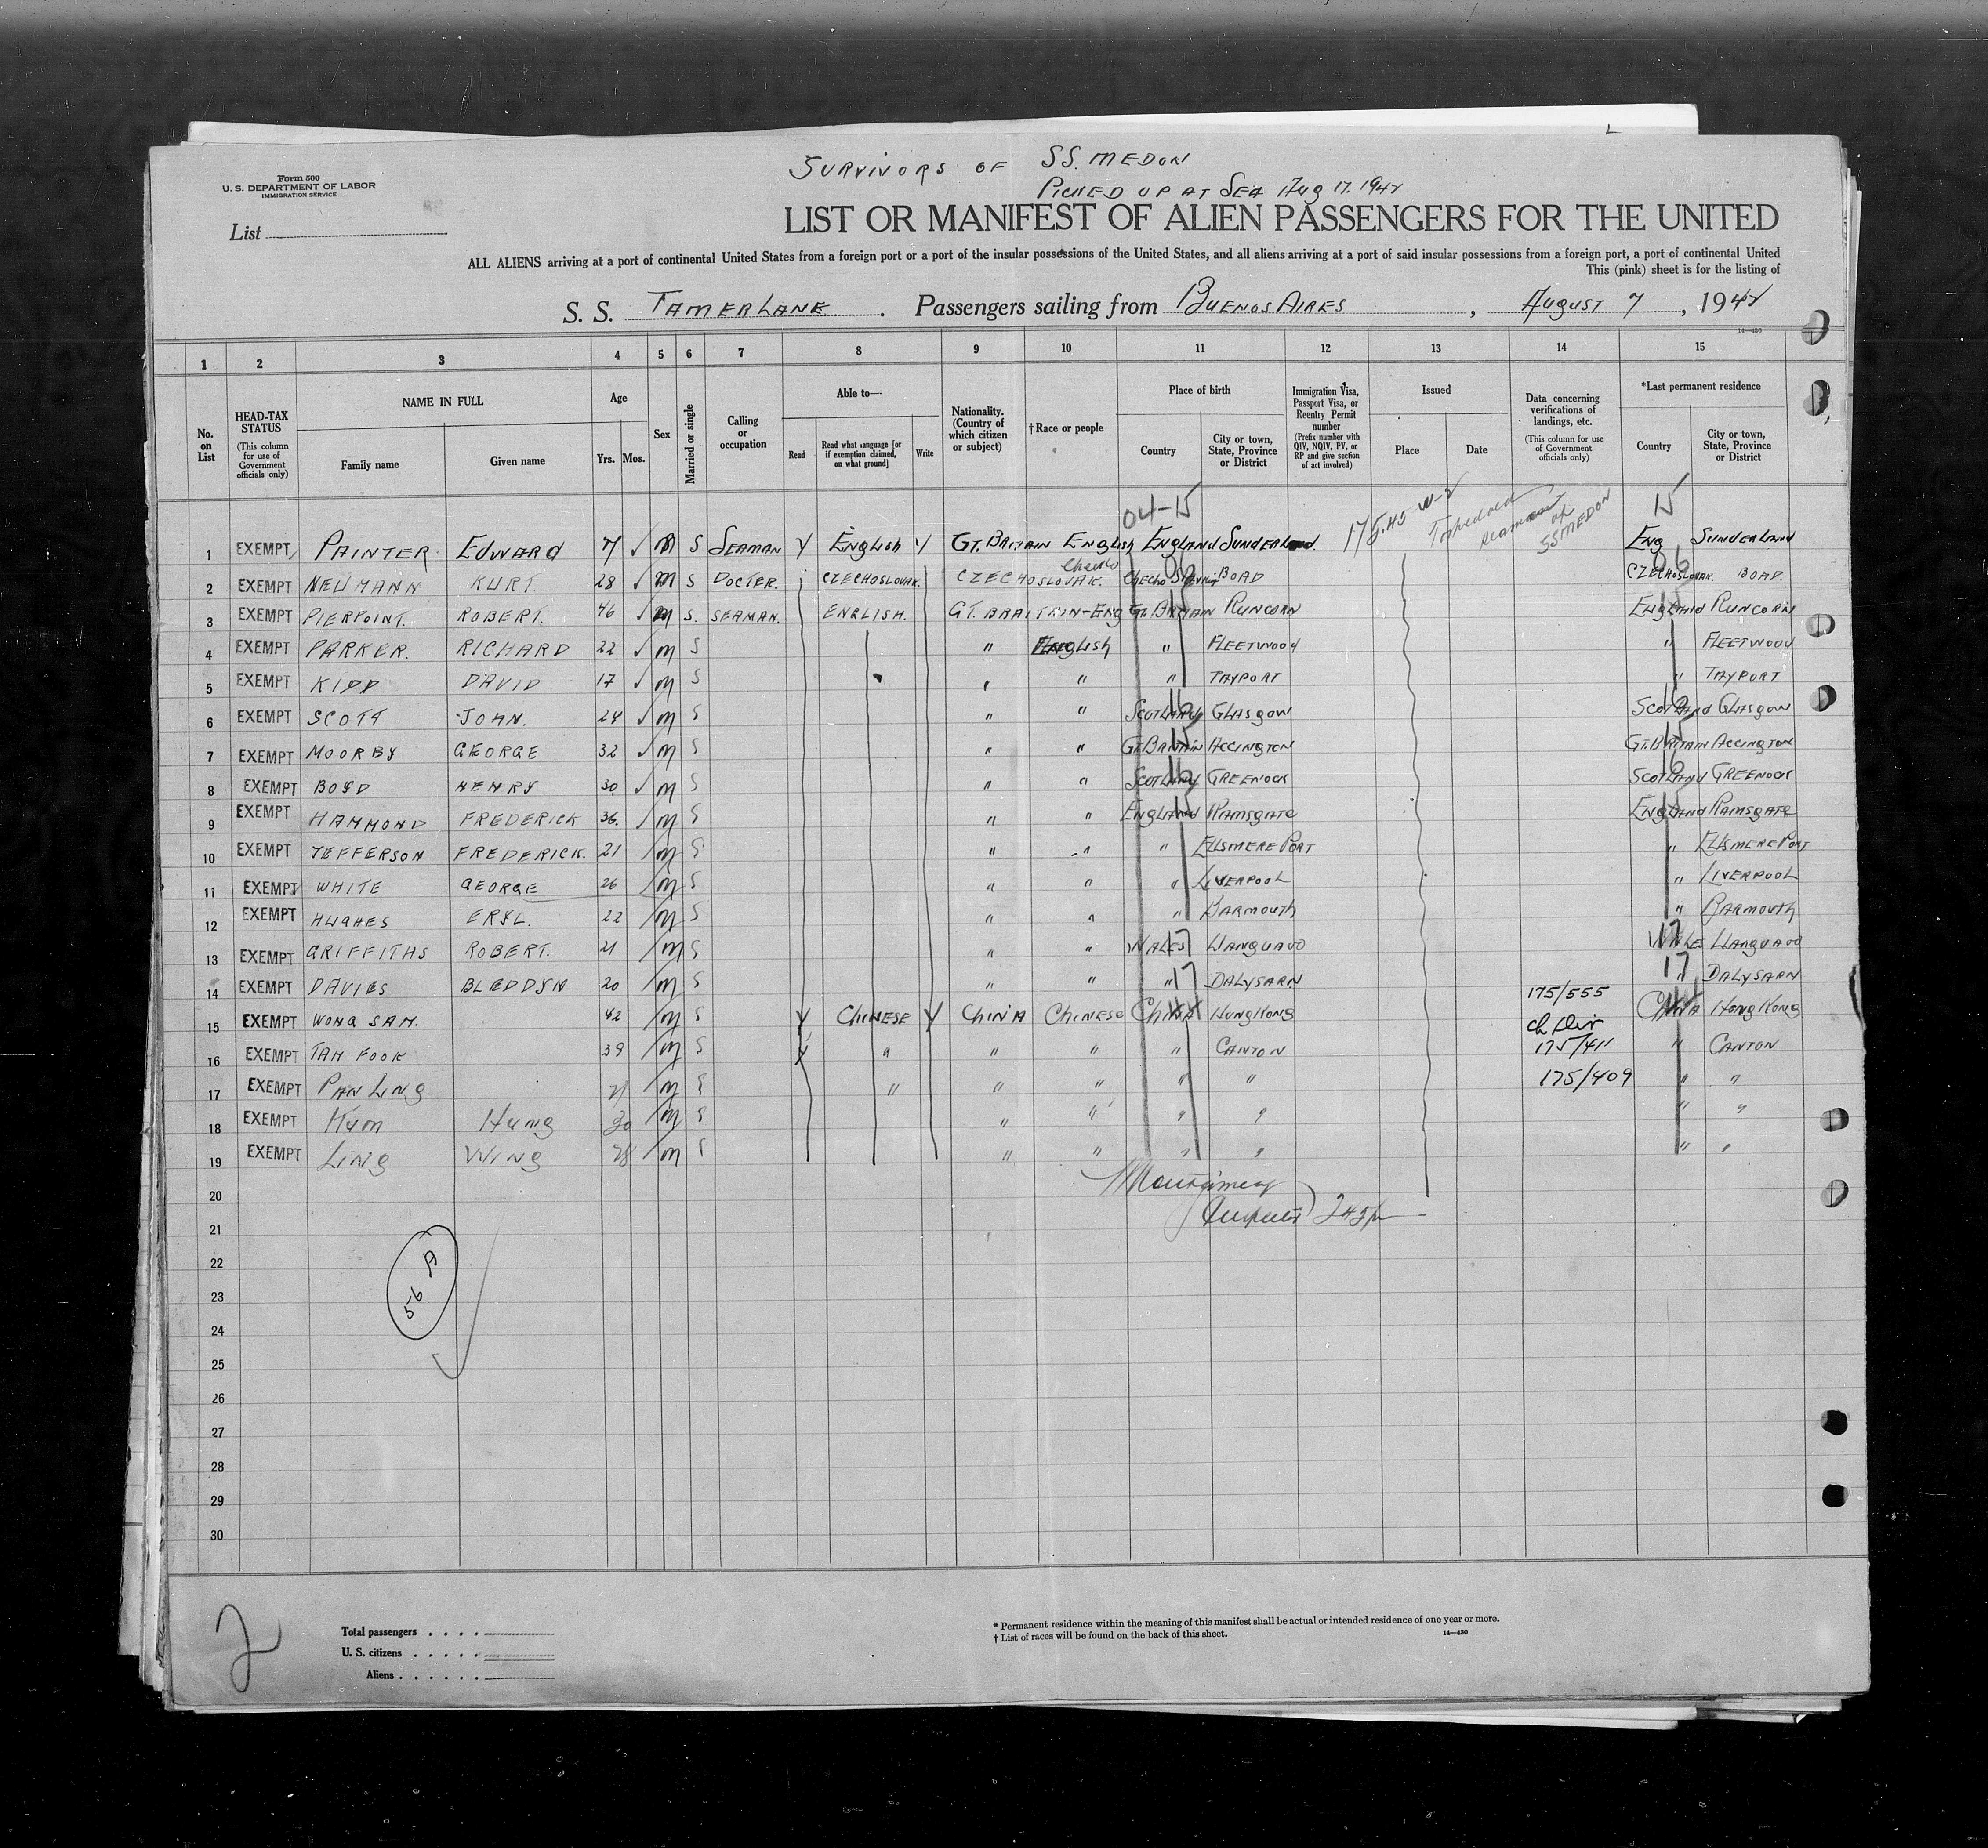 SURVIVORS OF SS. MEDON
PICKED UP AT SEA Aug 17. 1942
Form 500
U. S. DEPARTMENT OF LABOR
IMMIGRATION SERVICE
List
LIST OR MANIFEST OF ALIEN PASSENGERS FOR THE UNITED
ALL ALIENS arriving at a port of continental United States from a foreign port or a port of the insular possessions of the United States, and all aliens arriving at a port of said insular possessions from a foreign port, a port of continental United
This (pink) sheet is for the listing of
S. S. TAMERLANE. Passengers sailing from BUENOS AIRES, AUGUST 7, 1942
14—430
1 2 3 4 5 6 7 8 9 10 11 12 13 14 15
No. on List
HEAD-TAX STATUS (This column for use of Government officials only)
NAME IN FULL
Family name Given name
Age
Yrs. Mos.
Sex
Married or single
Calling or occupation
Able to—
Read Read what language [or if exemption claimed, on what ground] Write
Nationality. (Country of which citizen or subject)
† Race or people
Place of birth
Country City or town, State, Province or District
Immigration Visa, Passport Visa, or Reentry Permit number (Prefix number with QIV, NQIV, PV, or RP and give section of act involved)
Issued
Place Date
Data concerning verifications of landings, etc. (This column for use of Government officials only)
*Last permanent residence
Country City or town, State, Province or District
04-15 15
Torpedoed seamen of SS MEDON
1 EXEMPT PAINTER EDWARD M S SEAMAN Y ENGLISH Y GT. BRITAIN ENGLISH ENGLAND SUNDERLAND ENG SUNDERLAND
2 EXEMPT NEUMANN KURT. 28 M S DOCTER. CZECHOSLOVAK. CZECHOSLOVAK. BOAD CZECHOSLOVAK. BOAD.
3 EXEMPT PIERPOINT. ROBERT. 46 M S. SEAMAN. ENGLISH. GT. BRAITAIN-ENG GT. BRITAIN RUNCORN ENGLAND RUNCORN
4 EXEMPT PARKER. RICHARD 22 M S " ENGLISH " FLEETWOOD " FLEETWOOD
5 EXEMPT KIDD DAVID 17 M S " " " TAYPORT " TAYPORT
6 EXEMPT SCOTT JOHN. 24 M S " " SCOTLAND GLASGOW SCOTLAND GLASGOW
7 EXEMPT MOORBY GEORGE 32 M S " " GT. BRITAIN ACCINGTON GT. BRITAIN ACCINGTON
8 EXEMPT BOYD HENRY 30 M S " " SCOTLAND GREENOCK SCOTLAND GREENOCK
9 EXEMPT HAMMOND FREDERICK 36. M S " " ENGLAND RAMSGATE ENGLAND RAMSGATE
10 EXEMPT JEFFERSON FREDERICK. 21 M S " " " ELLSMERE PORT " ELLSMERE PORT
11 EXEMPT WHITE GEORGE 26 M S " " " LIVERPOOL " LIVERPOOL
12 EXEMPT HUGHES ERYL. 22 M S " " " BARMOUTH " BARMOUTH
13 EXEMPT GRIFFITHS ROBERT. 21 M S " " WALES 17 WALES 17
14 EXEMPT DAVIES BLEDDYN 20 M S " " 17 DALYSARN 17 " DALYSARN
175/555
15 EXEMPT WONG SAM. 42 M S Y CHINESE Y CHINA CHINESE CHINA HONG KONG CHINA HONG KONG
16 EXEMPT TAM FOOK 39 M S Y " " " " CANTON 175/411 " CANTON
17 EXEMPT PAN LING M S " " " " " 175/409 " "
18 EXEMPT KUM HUNG 30 M S " " " " " "
19 EXEMPT LING WING 28 M S " " " " " "
20
21
22
23
24
25
26
27
28
29
30
56 A
2
Total passengers
U. S. citizens
Aliens
* Permanent residence within the meaning of this manifest shall be actual or intended residence of one year or more.
† List of races will be found on the back of this sheet.
14—430